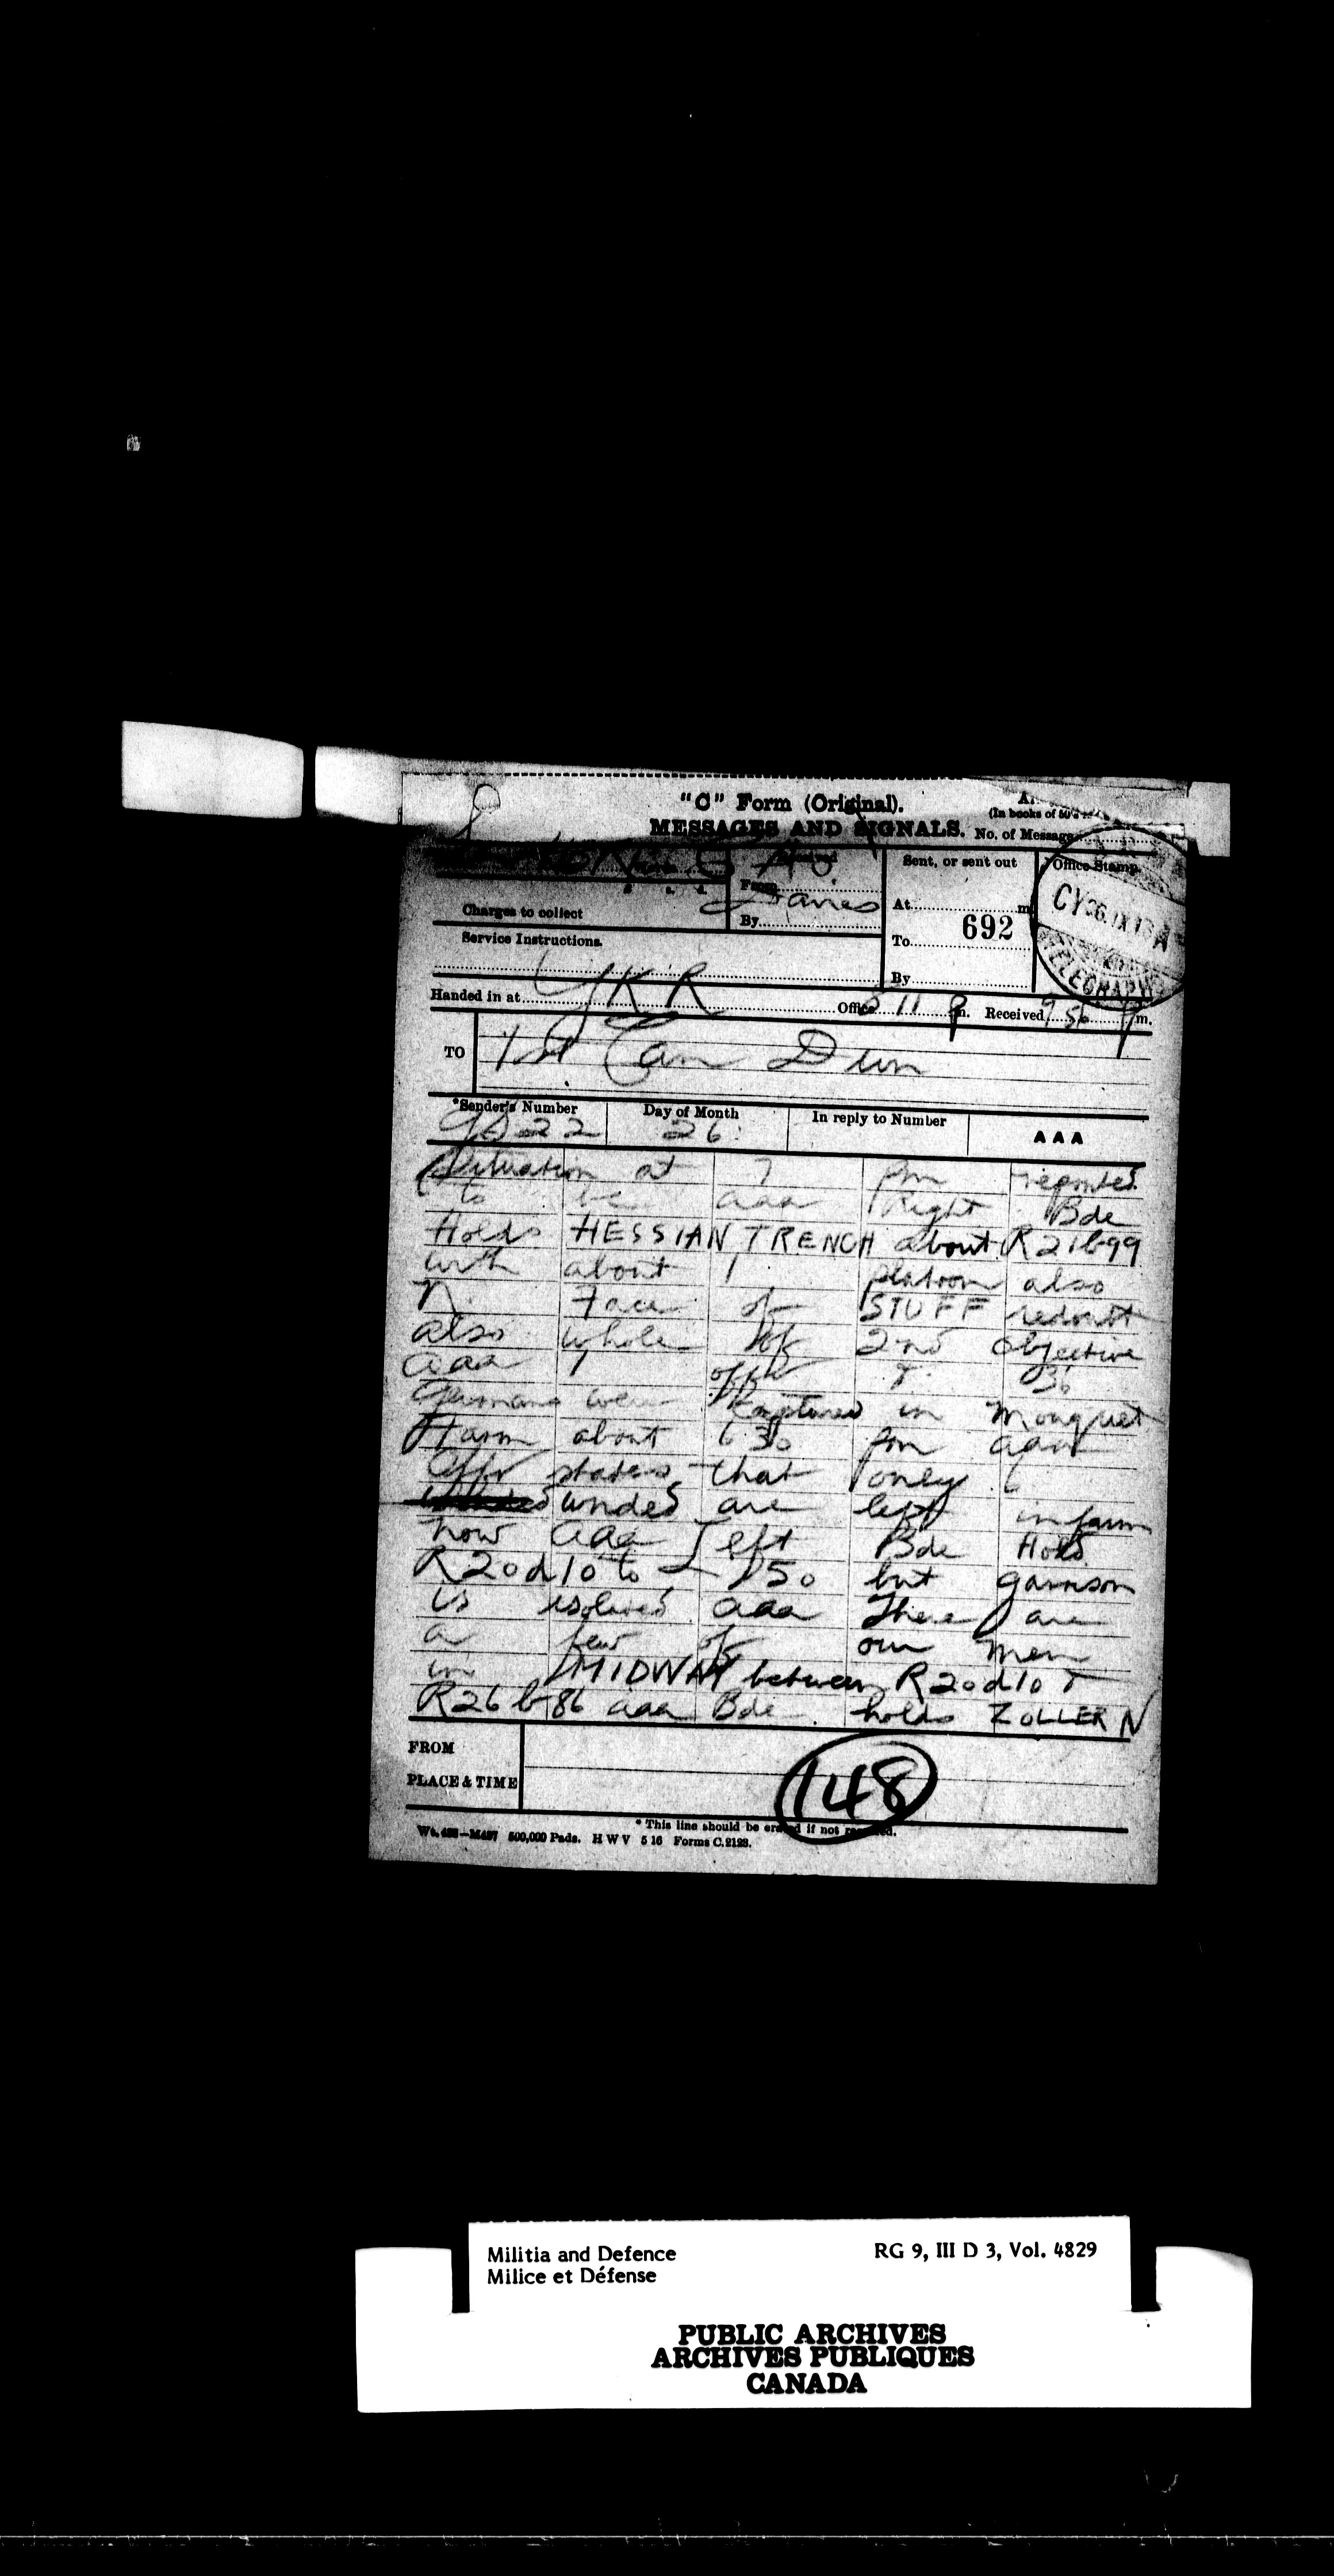 "C" Form (Original).
(In books of 50's
MESSAGES AND SIGNALS. No. of Message
Sent, or sent out
Office Stamp.
From
At m
Charges to collect
By
692
To
Service Instructions.
By
CY 26.IX.
TELEGRAPH
Handed in at YKR Office 8 11 p m. Received 9 56 p m.
TO 1st Can Divn
*Sender's Number Day of Month In reply to Number AAA
22 26
Situation at 7 pm reported
to be aaa Right Bde
Holds HESSIAN TRENCH about R21b99
with about 1 platoon also
N. Face of STUFF redoubt
also whole of 2nd objective
aaa 1 offr & 36
Germans were captured in Mouquet
Farm about 6 30 pm aaa
Offr states that only 6
unded are left in farm
now aaa Left Bde Holds
R20d10 to 50 but garrison
is isolated aaa There are
a few of our men
in MIDWAY between R20d10 &
R26b86 aaa Bde holds ZOLLERN
FROM
PLACE & TIME
148
* This line should be erased if not required.
500,000 Pads. H W V 5 16 Forms C.2123.
Militia and Defence RG 9, III D 3, Vol. 4829
Milice et Défense
PUBLIC ARCHIVES
ARCHIVES PUBLIQUES
CANADA